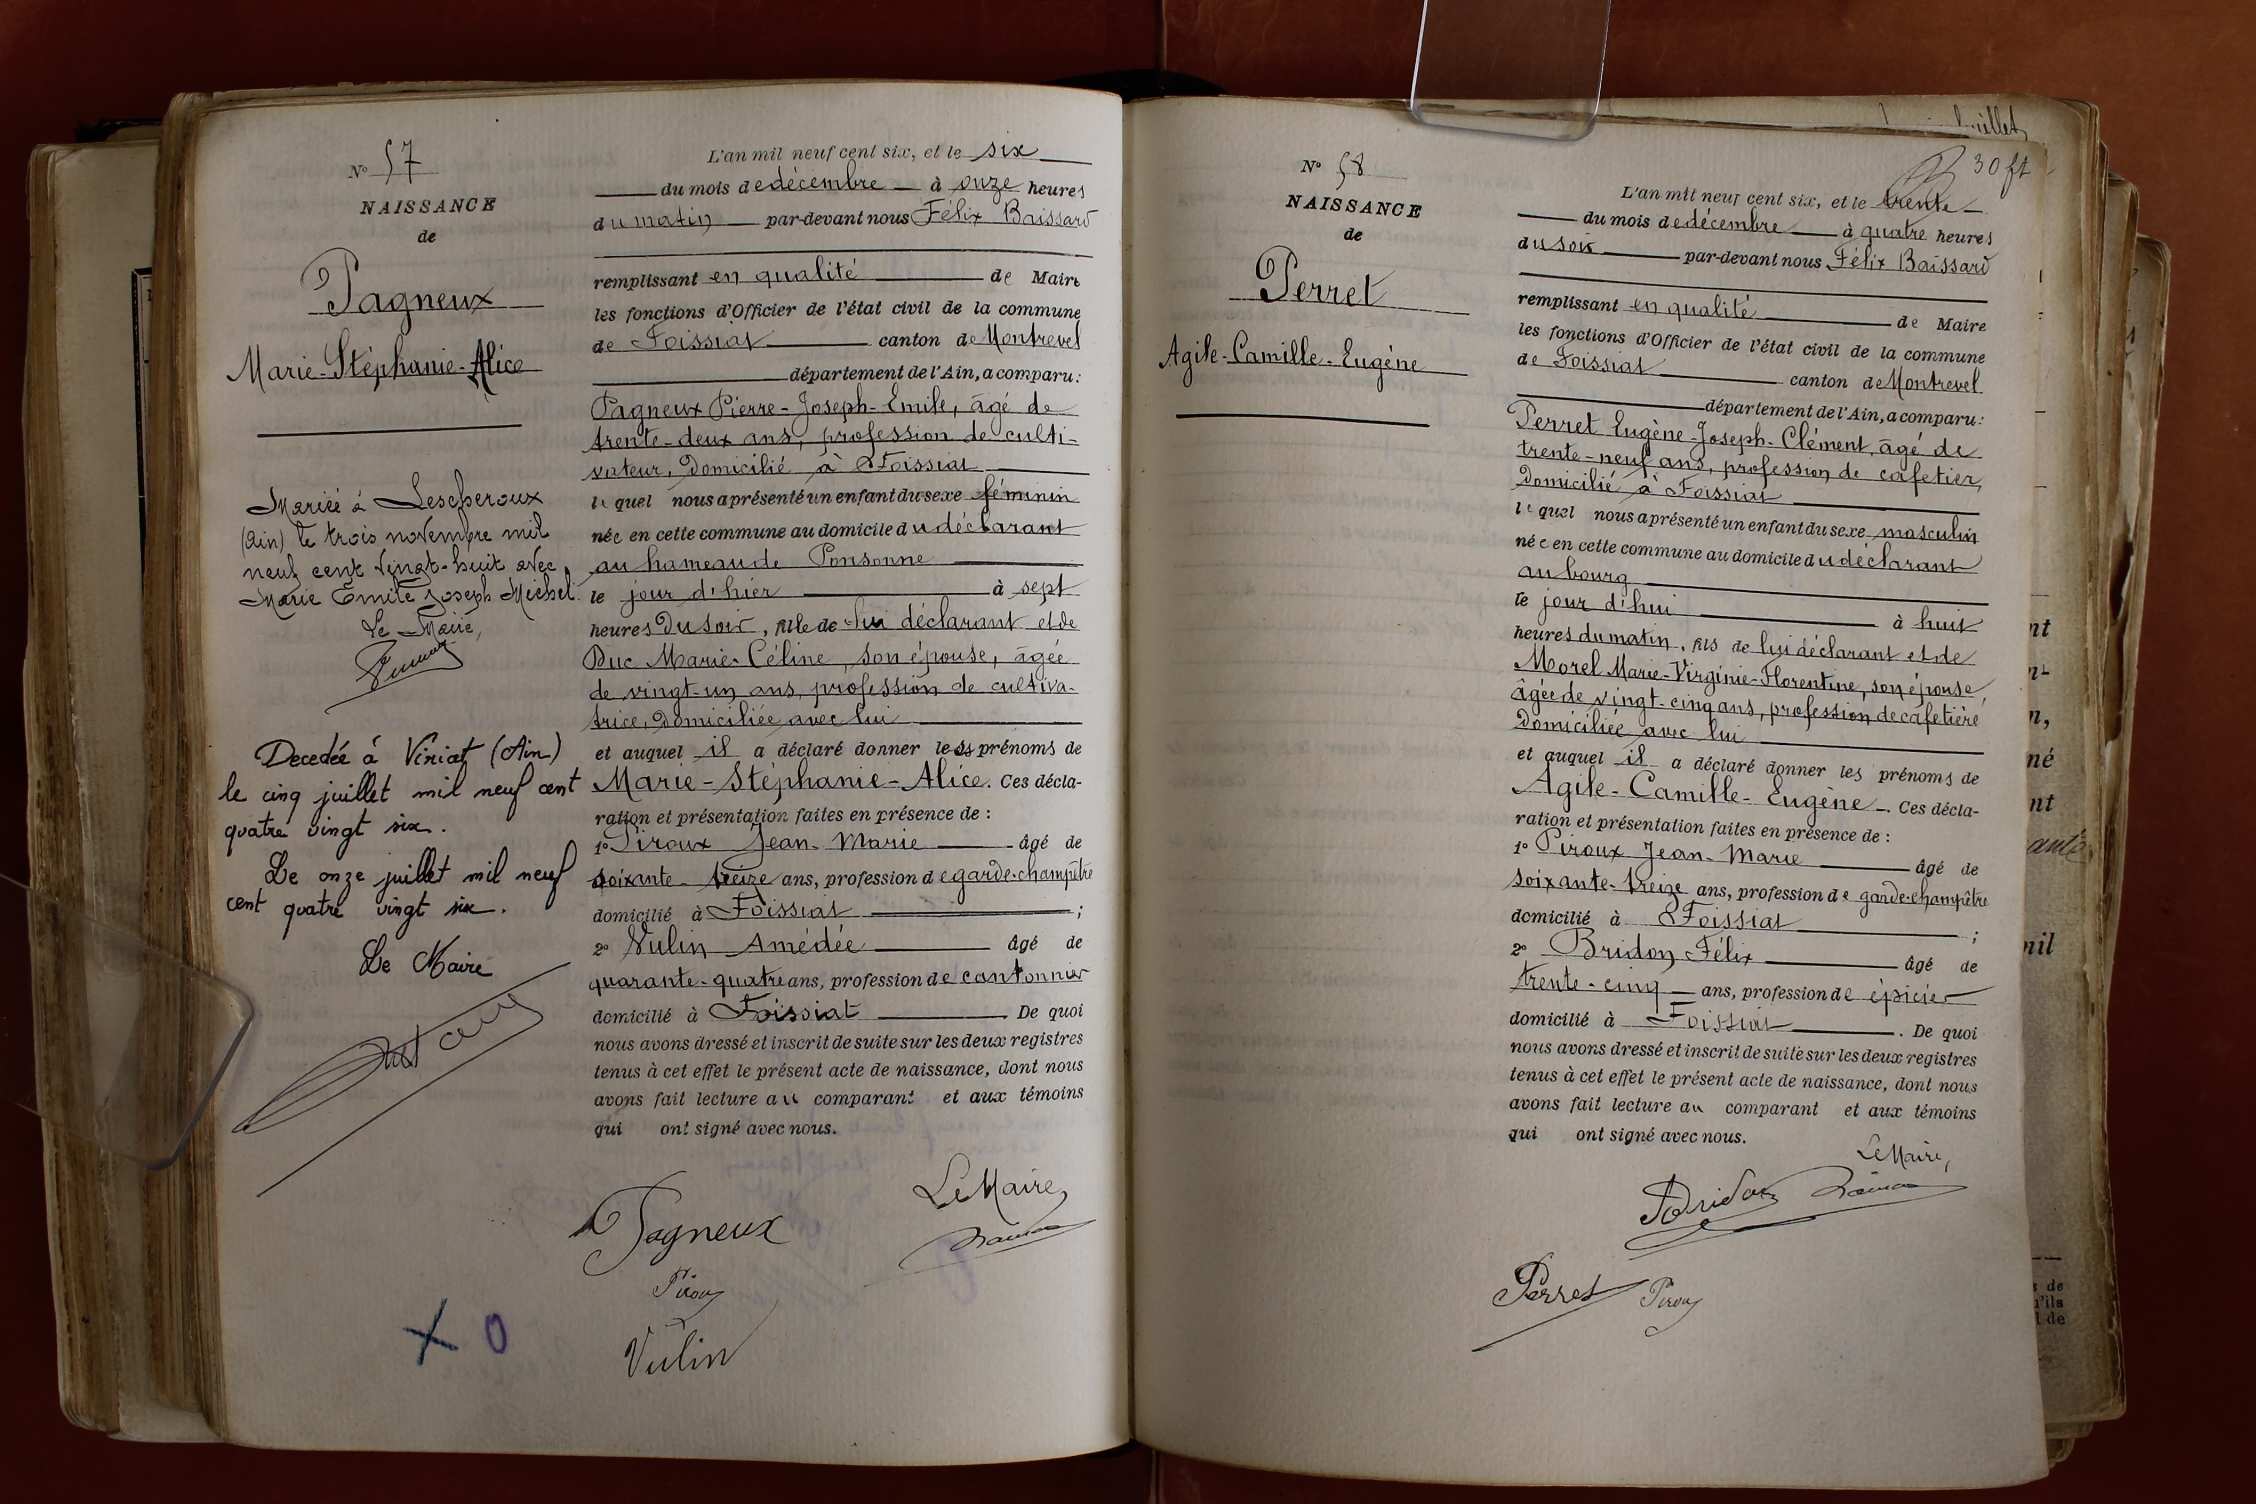 N° 57
NAISSANCE
de
Pagneux
Marie-Stéphanie-Alice
Mariée à Lescheroux
(Ain) le trois novembre mil
neuf cent vingt-huit avec
Marie Emile Joseph Michel.
Le Maire,
Decedée à Viriat (Ain)
le cinq juillet mil neuf cent
quatre vingt six.
Le onze juillet mil neuf
cent quatre vingt six.
Le Maire
X 0
L'an mil neuf cent six, et le six
du mois de décembre à onze heures
du matin par-devant nous Félix Baissard
remplissant en qualité de Maire
les fonctions d'Officier de l'état civil de la commune
de Foissiat canton de Montrevel
département de l'Ain, a comparu:
Pagneux Pierre-Joseph-Emile, âgé de
trente-deux ans, profession de culti-
vateur, domicilié à Foissiat
lequel nous a présenté un enfant du sexe féminin
née en cette commune au domicile du déclarant
au hameau de Ponsonne
le jour d'hier à sept
heures du soir, fille de lui déclarant et de
Duc Marie-Céline, son épouse, âgée
de vingt-un ans, profession de cultiva-
trice, domiciliée avec lui
et auquel il a déclaré donner les prénoms de
Marie-Stéphanie-Alice. Ces décla-
ration et présentation faites en présence de :
1° Piroux Jean-Marie âgé de
soixante-treize ans, profession de garde-champêtre
domicilié à Foissiat ;
2° Vulin Amédée âgé de
quarante-quatre ans, profession de cantonnier
domicilié à Foissiat. De quoi
nous avons dressé et inscrit de suite sur les deux registres
tenus à cet effet le présent acte de naissance, dont nous
avons fait lecture au comparant et aux témoins
qui ont signé avec nous.
Le Maire,
Pagneux
Piroux
Vulin
N° 58
NAISSANCE
de
Perret
Agile-Camille-Eugène
30 ft
L'an mil neuf cent six, et le trente
du mois de décembre à quatre heures
du soir par-devant nous Félix Baissard
remplissant en qualité de Maire
les fonctions d'Officier de l'état civil de la commune
de Foissiat canton de Montrevel
département de l'Ain, a comparu:
Perret Eugène-Joseph-Clément, âgé de
trente-neuf ans, profession de cafetier,
domicilié à Foissiat
lequel nous a présenté un enfant du sexe masculin
née en cette commune au domicile du déclarant
au bourg
le jour d'hui à huit
heures du matin, fils de lui déclarant et de
Morel Marie-Virginie-Florentine, son épouse,
âgée de vingt-cinq ans, profession de cafetière
domiciliée avec lui
et auquel il a déclaré donner les prénoms de
Agile-Camille-Eugène. Ces décla-
ration et présentation faites en présence de :
1° Piroux Jean-Marie âgé de
soixante-treize ans, profession de garde-champêtre
domicilié à Foissiat ;
2° Bridon Félix âgé de
trente-cinq ans, profession de épicier
domicilié à Foissiat. De quoi
nous avons dressé et inscrit de suite sur les deux registres
tenus à cet effet le présent acte de naissance, dont nous
avons fait lecture au comparant et aux témoins
qui ont signé avec nous.
Le Maire,
Bridon
Perret Piroux